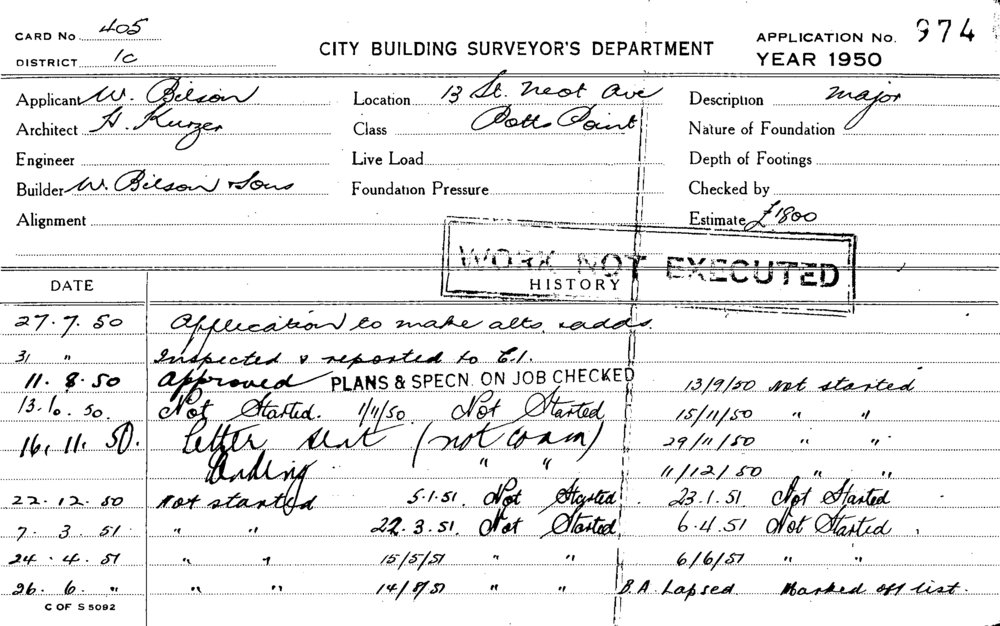 CARD No 405
DISTRICT 1c
CITY BUILDING SURVEYOR'S DEPARTMENT
APPLICATION No. 974
YEAR 1950
Applicant W. Bilson Location 13 St. Neot Ave Description major
Architect H. Kurzer Class Potts Point Nature of Foundation
Engineer Live Load Depth of Footings
Builder W. Bilson & Sons Foundation Pressure Checked by
Alignment Estimate £1800
WORK NOT EXECUTED
DATE HISTORY
27.7.50 Application to make alts. & adds.
31 " Inspected & reported to C.I.
11.8.50 Approved PLANS & SPECN. ON JOB CHECKED 13/9/50 Not started
13. 50. Not Started. 1/11/50 Not Started 15/11/50 " "
16.11.50. Letter sent (not comm) 29/11/50 " "
" " 11/12/50 " "
22.12.50 Not started 5.1.51. Not Started 23.1.51 Not Started
7.3.51 " " 22.3.51. Not Started 6.4.51 Not Started.
24.4.51 " " 15/5/51 " " 6/6/51 " "
26.6. " " " 14/8/51 " " B.A. Lapsed Marked off list.
C OF S 5092